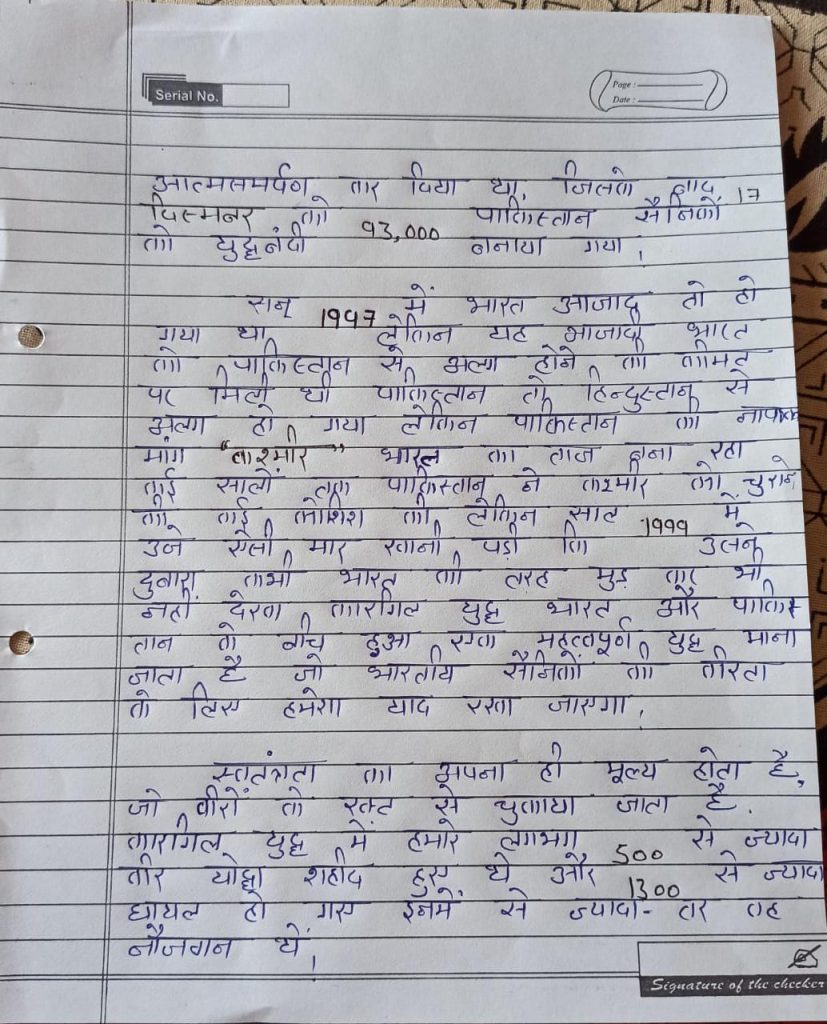 Serial No.
Page :
Date :
आत्मसमर्पण कर दिया था, जिसके बाद 17
दिसम्बर को 93,000 पाकिस्तान सैनिकों
को युद्धबंदी बनाया गया।
सन् 1947 में भारत आजाद तो हो
गया था लेकिन यह आजादी भारत
को पाकिस्तान से अलग होने की कीमत
पर मिली थी पाकिस्तान तो हिन्दुस्तान से
अलग हो गया लेकिन पाकिस्तान की नापाक
मांग "कश्मीर" भारत का ताज बना रहा
कई सालों तक पाकिस्तान ने कश्मीर को चुराने
की कई कोशिश की लेकिन साल 1999 में
उसे ऐसी मार खानी पड़ी कि उसने
दुबारा कभी भारत की तरह मुड़ कर भी
नहीं देखा कारगिल युद्ध भारत और पाकिस
तान के बीच हुआ एक महत्वपूर्ण युद्ध माना
जाता है जो भारतीय सैनिकों की वीरता
के लिए हमेशा याद रखा जाएगा।
स्वतंत्रता का अपना ही मूल्य होता है,
जो वीरों के रक्त से चुकाया जाता है.
कारगिल युद्ध में हमारे लगभग 500 से ज्यादा
वीर योद्धा शहीद हुए थे और 1300 से ज्यादा
घायल हो गए इनमें से ज्यादा-तर वह
नौजवान थे।
Signature of the checker